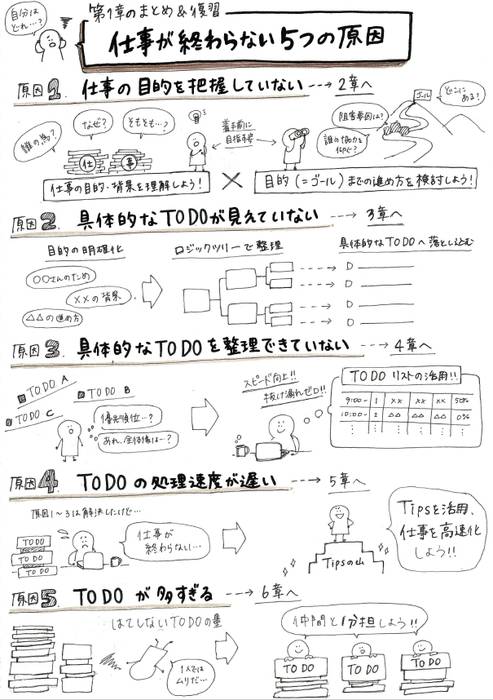 自分は
どれ…？
第1章のまとめ＆復習
仕事が終わらない5つの原因
原因1. 仕事の目的を把握していない → 2章へ
誰の為？
なぜ？
そもそも…？
仕 事
着手前に
目指す姿
ゴール
どこに
ある！
阻害要因は？
誰の協力を
仰ぐ？
仕事の目的・背景を理解しよう！
×
目的（＝ゴール）までの進め方を検討しよう！
原因2. 具体的なTODOが見えていない → 3章へ
目的の明確化
ロジックツリーで整理
具体的なTODOへ落とし込む
○○さんのため
××の背景
△△の進め方
原因3. 具体的なTODOを整理できていない → 4章へ
TODO A
TODO B
TODO C
優先順位…？
あれ、全体像は…？
スピード向上!!
抜け漏れゼロ!!
TODOリストの活用!!
9:00~ 1 ×× ×× ×× 50%
10:00~ 2 △△ △△ △△ 0%
原因4. TODOの処理速度が遅い → 5章へ
原因1〜3は解決したけど…
TODO
TODO
TODO
仕事が
終わらない…
Tipsの山
Tipsを活用、
仕事を高速化
しよう!!
原因5. TODOが多すぎる → 6章へ
はてしないTODOの量
1人では
ムリだ…
仲間と分担しよう!!
TODO
TODO
TODO